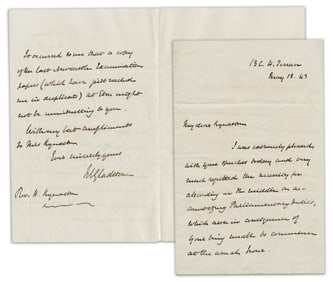 13 C. H. Terrace
May 18. 43
My dear Kynaston
I was extremely pleased
with your
today and very
much regretted the necessity for
absconding in the middle on ac-
count of my Parliamentary duties,
which arose in consequence of
your being unable to commence
at the usual hour.
It occurred to me that a copy
of the last Newcastle Examination
papers (which have just reached
me in duplicate) at Eton might
not be uninteresting to you.
With my best compliments
to Mrs Kynaston
most sincerely yours
WEGladstone
Rev. H. Kynaston